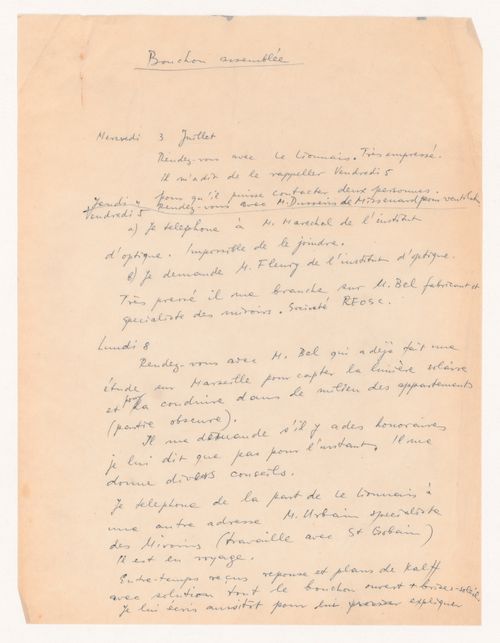 Bouchon assemblée
Mercredi 3 Juillet
Rendez-vous avec Le Lionnais. Très empressé.
Il m'a dit de le rappeller Vendredi 5
pour qu'il puisse contacter deux personnes.
Jeudi 4 Rendez-vous avec M. de Missenard pour
Vendredi 5
a) Je telephone à M. Marechal de l'institut
d'optique. Impossible de le joindre.
b) Je demande M. Fleury de l'institut d'optique.
Très pressé il me branche sur M. Bel fabricant et
specialiste des miroirs. Société REOSC.
Lundi 8
Rendez-vous avec M. Bel qui a déjà fait une
étude sur Marseille pour capter la lumière solaire
et pour la conduire dans le milieu des appartements
(partie obscure).
Il me demande s'il y a des honoraires
je lui dit que pas pour l'instant. Il me
donne divers conseils.
Je telephone de la part de Le Lionnais à
une autre adresse M. Urbain specialiste
des Miroirs (travaille avec St Gobain)
Il est en voyage.
Entre-temps reçus reponse et plans de Kalff
avec solution tout le bouchon ouvert + brise-soleil.
Je lui écris aussitot pour lui expliquer